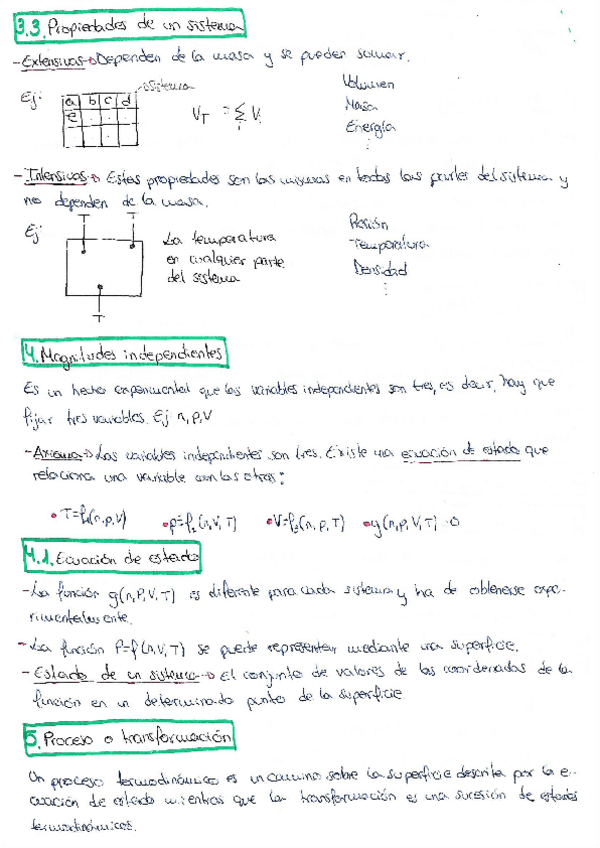 3.3. Propiedades de un sistema
- Extensivas → Dependen de la masa y se pueden sumar.
Ej: sistema
a b c d
e
V_T = Σ V_i
i
Volumen
Masa
Energía
⋮
- Intensivas → Estas propiedades son las mismas en todas las partes del sistema y
no dependen de la masa.
Ej:
T T
T
La temperatura
en cualquier parte
del sistema
Presión
Temperatura
Densidad
⋮
4. Magnitudes independientes
Es un hecho experimental que las variables independientes son tres, es decir, hay que
fijar tres variables. Ej n, p, V
- Axioma → Las variables independientes son tres. Existe una ecuación de estado que
relaciona una variable con las otras:
• T=f₁(n,p,V) • p=f₂(n,V,T) • V=f₃(n,p,T) • g(n,p,V,T)=0
4.1. Ecuación de estado
- La función g(n,P,V,T) es diferente para cada sistema y ha de obtenerse expe-
rimentalmente.
- La función P=f(n,V,T) se puede representar mediante una superficie.
- Estado de un sistema → El conjunto de valores de las coordenadas de la
función en un determinado punto de la superficie
5. Proceso o transformación
Un proceso termodinámico es un camino sobre la superficie descrita por la e-
cuación de estado mientras que la transformación es una sucesión de estados
termodinámicos.